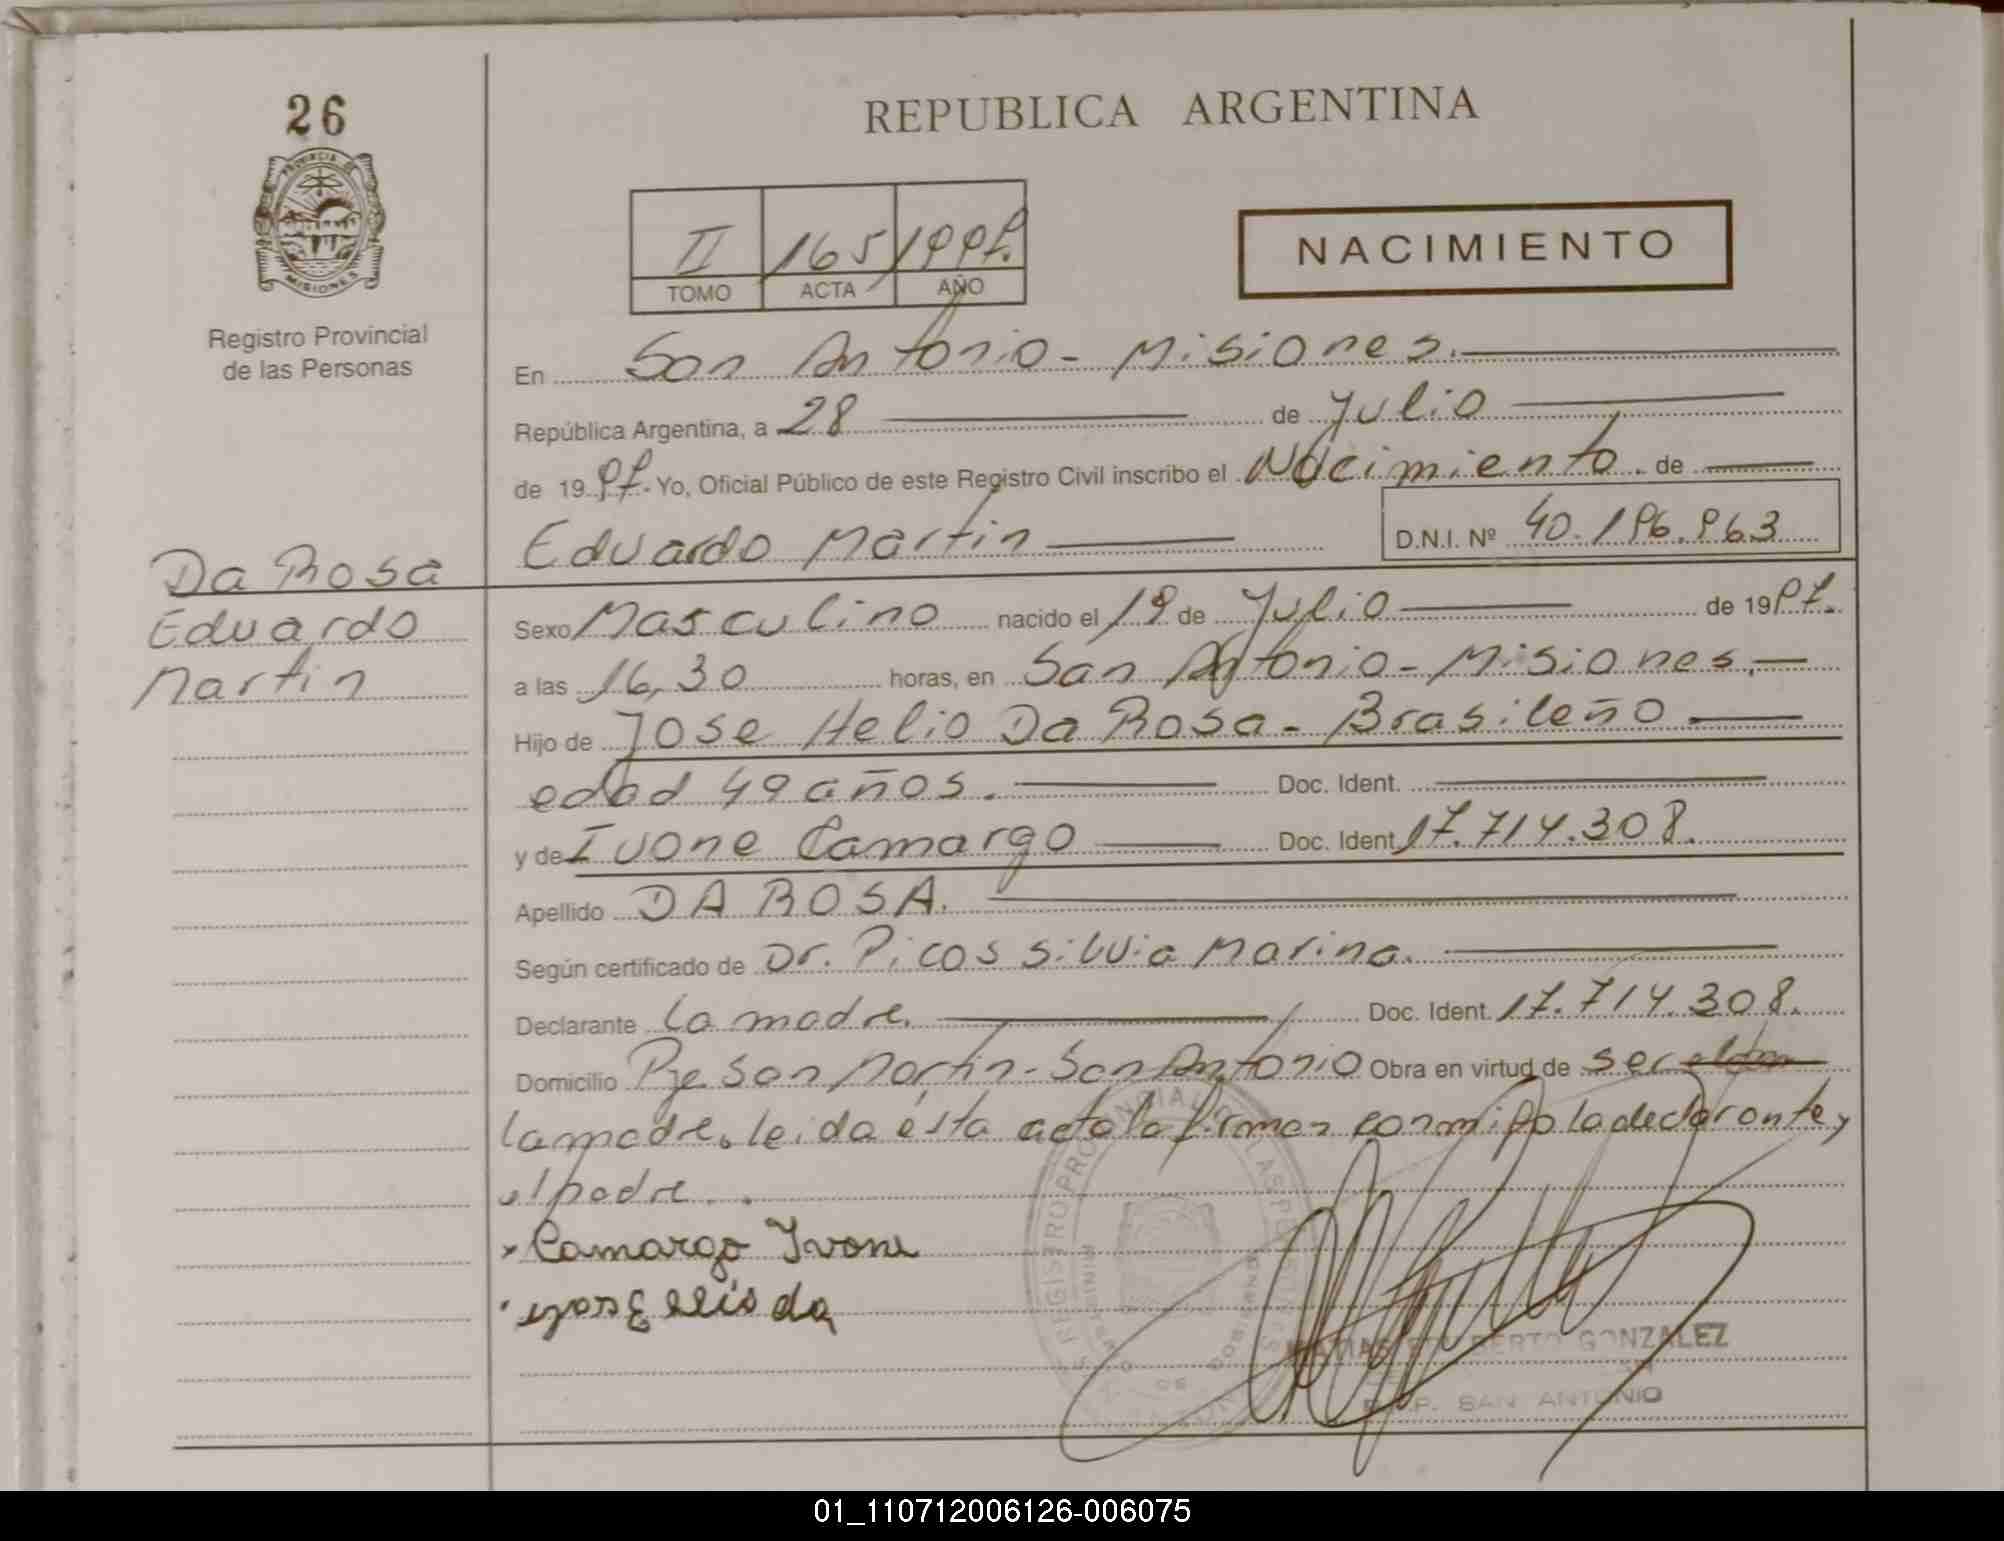 26
PROVINCIA DE
MISIONES
Registro Provincial
de las Personas
REPUBLICA ARGENTINA
II 165 1997.
TOMO ACTA AÑO
NACIMIENTO
En San Antonio - Misiones.
República Argentina, a 28 de Julio
de 1997. Yo, Oficial Público de este Registro Civil inscribo el Nacimiento. de
Eduardo Martin D.N.I. Nº 40.196.963
Da Rosa
Eduardo
Martin
Sexo Masculino nacido el 19 de Julio de 1997.
a las 16,30 horas, en San Antonio - Misiones.
Hijo de Jose Helio Da Rosa - Brasileño
edad 49 años. Doc. Ident.
y de Ivone Camargo Doc. Ident. 17.714.308.
Apellido DA ROSA.
Según certificado de Dr. Picos Silvia Marina.
Declarante La madre. Doc. Ident. 17.714.308.
Domicilio Pje San Martin - San Antonio Obra en virtud de ser
la madre. leida ésta acta la firman conmigo la declarante y
el padre.
x Camargo Ivone
REGISTRO PROVINCIAL DE LAS PERSONAS
MINISTERIO DE GOBIERNO
BERTO GONZALEZ
R.P.P. SAN ANTONIO
01_110712006126-006075